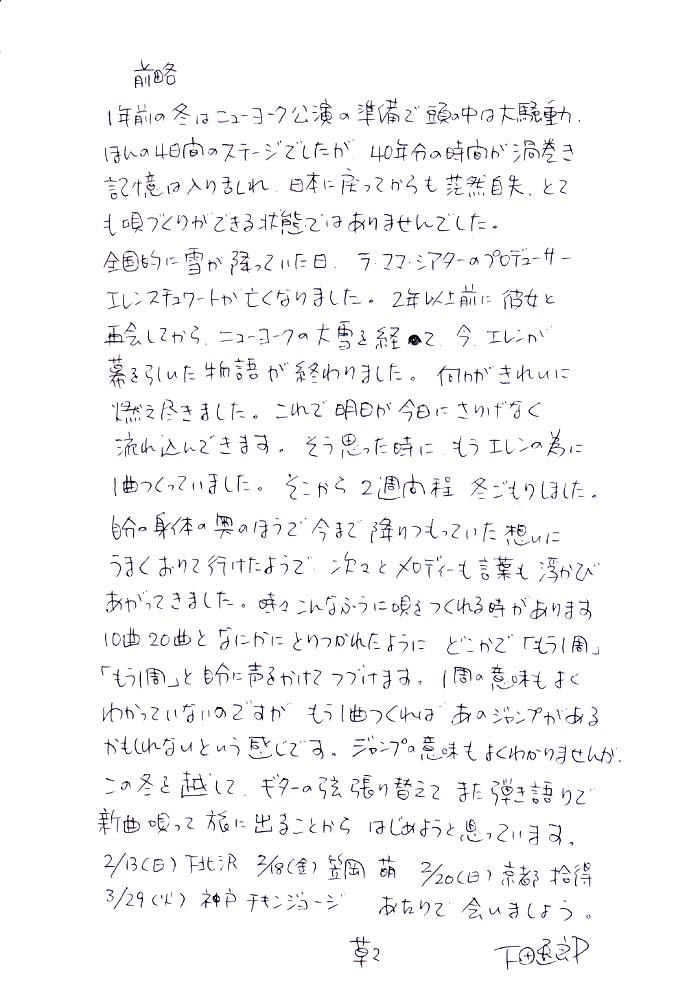 前略
1年前の冬はニューヨーク公演の準備で頭の中は大騒動、
ほんの4日間のステージでしたが、40年分の時間が渦巻き
記憶は入り乱れ、日本に戻ってからも茫然自失、とて
も唄づくりができる状態ではありませんでした。
全国的に雪が降っていた日、ラ・ママ・シアターのプロデューサー
エレンスチュワートが亡くなりました。2年以上前に彼女と
再会してから、ニューヨークの大雪を経て、今、エレンが
幕を引いた物語が終わりました。何かがきれいに
燃え尽きました。これで明日が今日にさりげなく
流れ込んできます。そう思った時に、もうエレンの為に
1曲つくっていました。そこから2週間程冬ごもりしました。
自分の身体の奥のほうで今まで降りつもっていた想いに
うまくおりて行けたようで、次々とメロディーも言葉も浮かび
あがってきました。時々こんなふうに唄をつくれる時があります
10曲20曲となにかにとりつかれたように どこかで「もう1周」
「もう1周」と自分に声をかけてつづけます。1周の意味もよく
わかっていないのですが もう1曲つくれば あのジャンプがある
かもしれないという感じです。ジャンプの意味もよくわかりませんが、
この冬を越して、ギターの弦張り替えて また弾き語りで
新曲唄って旅に出ることから はじめようと思っています。
2/13(日)下北沢 2/18(金)笠岡 萌 2/20(日)京都 拾得
3/29(火)神戸チキンジョージ あたりで会いましょう。
草々 下田逸郎